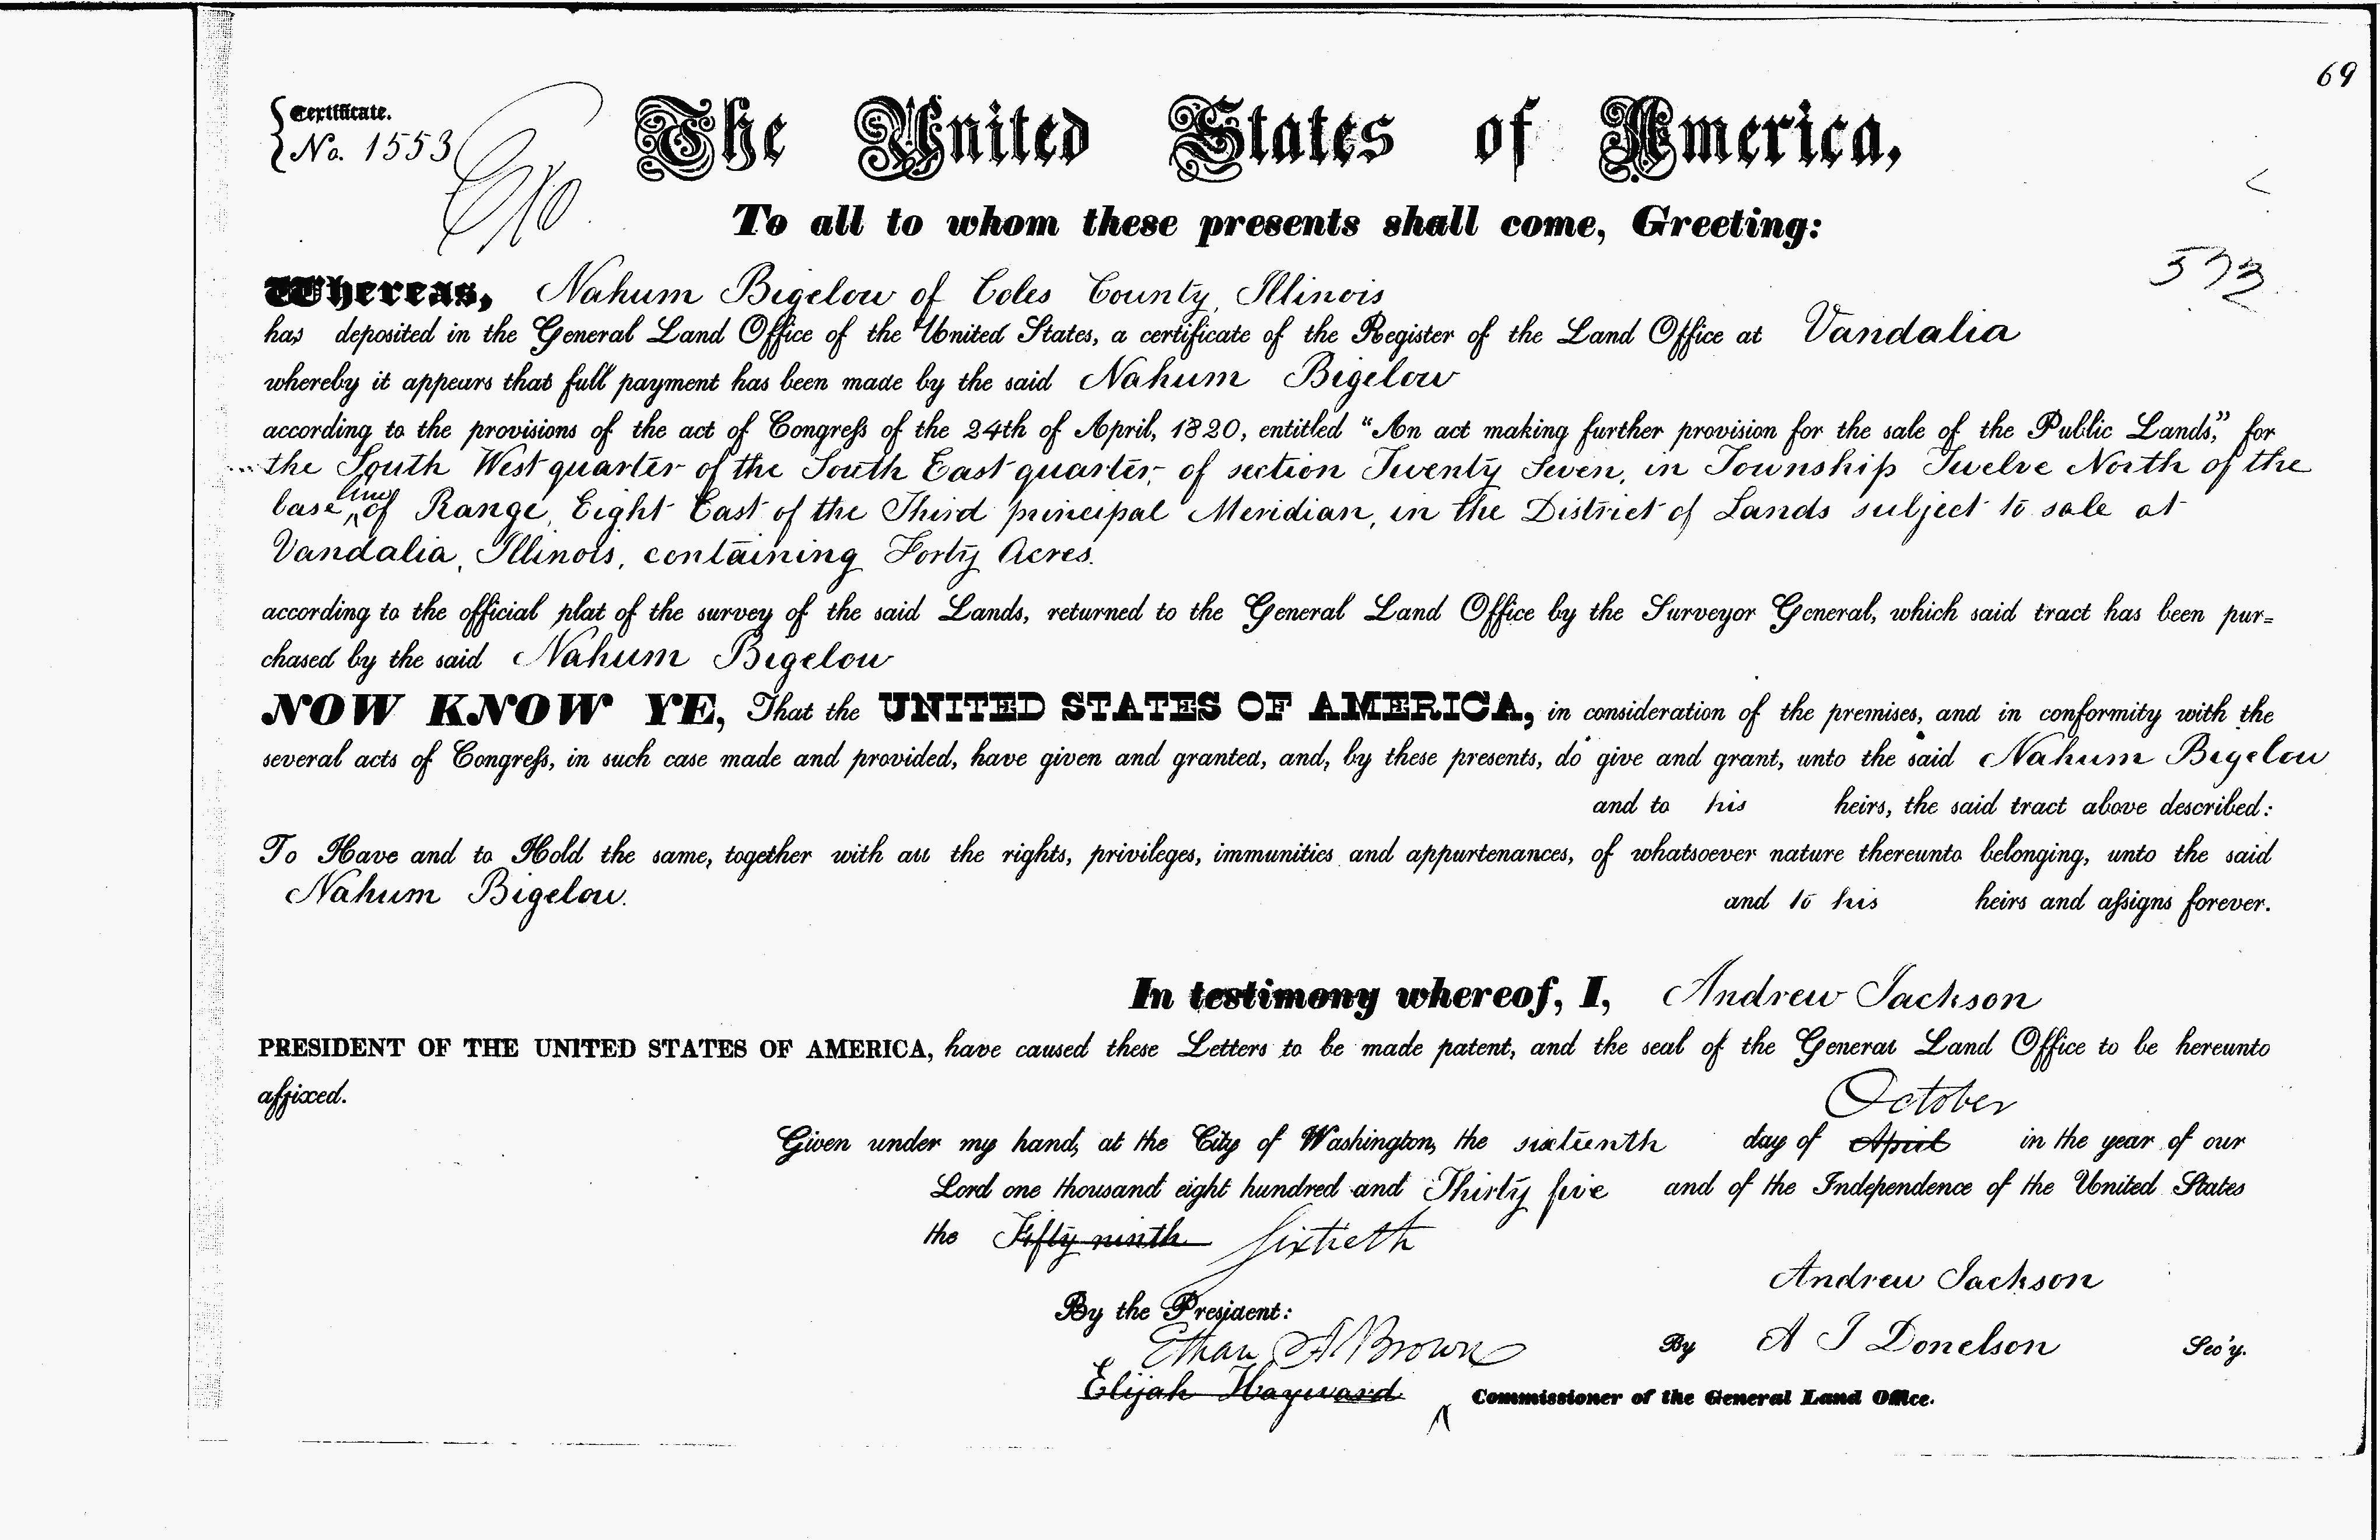 69
Certificate.
No. 1553
The United States of America,
To all to whom these presents shall come, Greeting:
573
Whereas, Nahum Bigelow of Coles County, Illinois
has deposited in the General Land Office of the United States, a certificate of the Register of the Land Office at Vandalia
whereby it appears that full payment has been made by the said Nahum Bigelow
according to the provisions of the act of Congress of the 24th of April, 1820, entitled "An act making further provision for the sale of the Public Lands," for
the South West quarter of the South East quarter, of section Twenty Seven, in Township Twelve North of the
base line of Range, Eight East of the Third principal Meridian, in the District of Lands subject to sale at
Vandalia, Illinois, containing Forty Acres.
according to the official plat of the survey of the said Lands, returned to the General Land Office by the Surveyor General, which said tract has been pur=
chased by the said Nahum Bigelow
NOW KNOW YE, That the UNITED STATES OF AMERICA, in consideration of the premises, and in conformity with the
several acts of Congress, in such case made and provided, have given and granted, and, by these presents, do give and grant, unto the said Nahum Bigelow
and to his heirs, the said tract above described:
To Have and to Hold the same, together with all the rights, privileges, immunities and appurtenances, of whatsoever nature thereunto belonging, unto the said
Nahum Bigelow. and to his heirs and assigns forever.
In testimony whereof, I, Andrew Jackson
PRESIDENT OF THE UNITED STATES OF AMERICA, have caused these Letters to be made patent, and the seal of the General Land Office to be hereunto
affixed.
October
Given under my hand, at the City of Washington, the sixteenth day of April in the year of our
Lord one thousand eight hundred and Thirty five and of the Independence of the United States
the Fifty ninth Sixtieth
Andrew Jackson
By the President:
Ethan A Brown
By A J Donelson Sec'y.
Elijah Hayward Commissioner of the General Land Office.